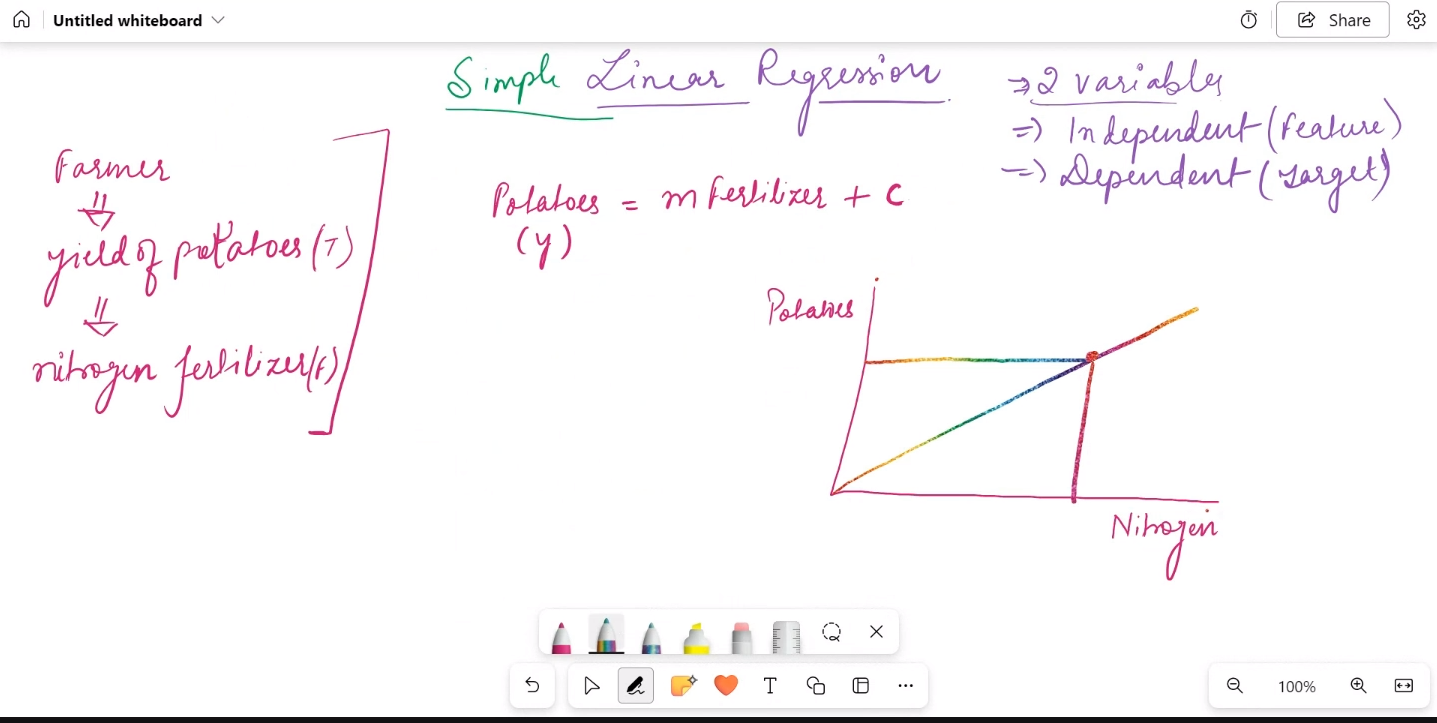 Untitled whiteboard
Share
Simple Linear Regression
⇒ 2 variables
⇒ Independent (Feature)
⇒ Dependent (Target)
Farmer
yield of potatoes (T)
nitrogen fertilizer (F)
Potatoes = m Fertilizer + C
(y)
Potatoes
Nitrogen
T
100%